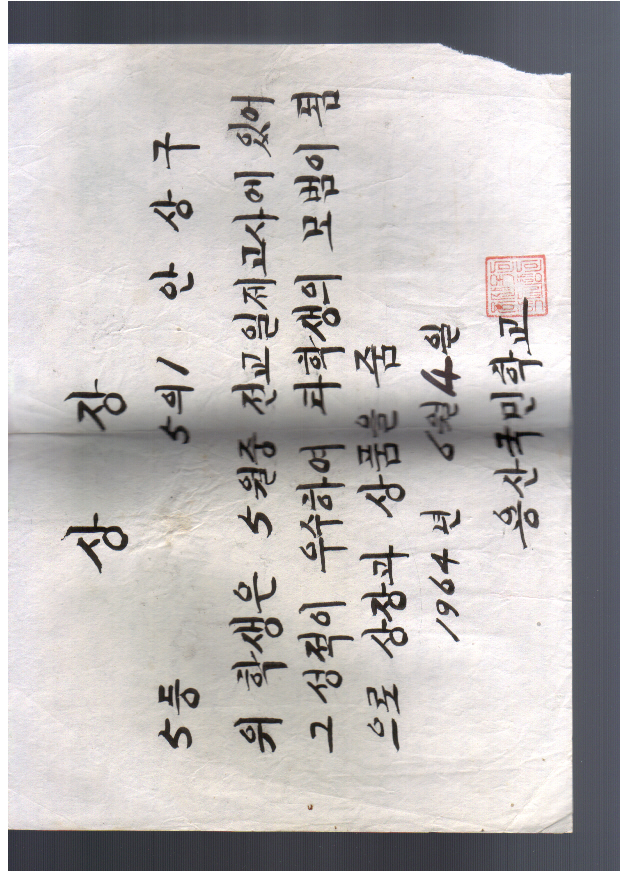 상 장
5등 5의1 안 상 구
위 학생은 5월중 전교일제고사에 있어
그 성적이 우수하여 타학생의 모범이 됨
으로 상장과 상품을 줌
1964년 6월 4일
용산국민학교